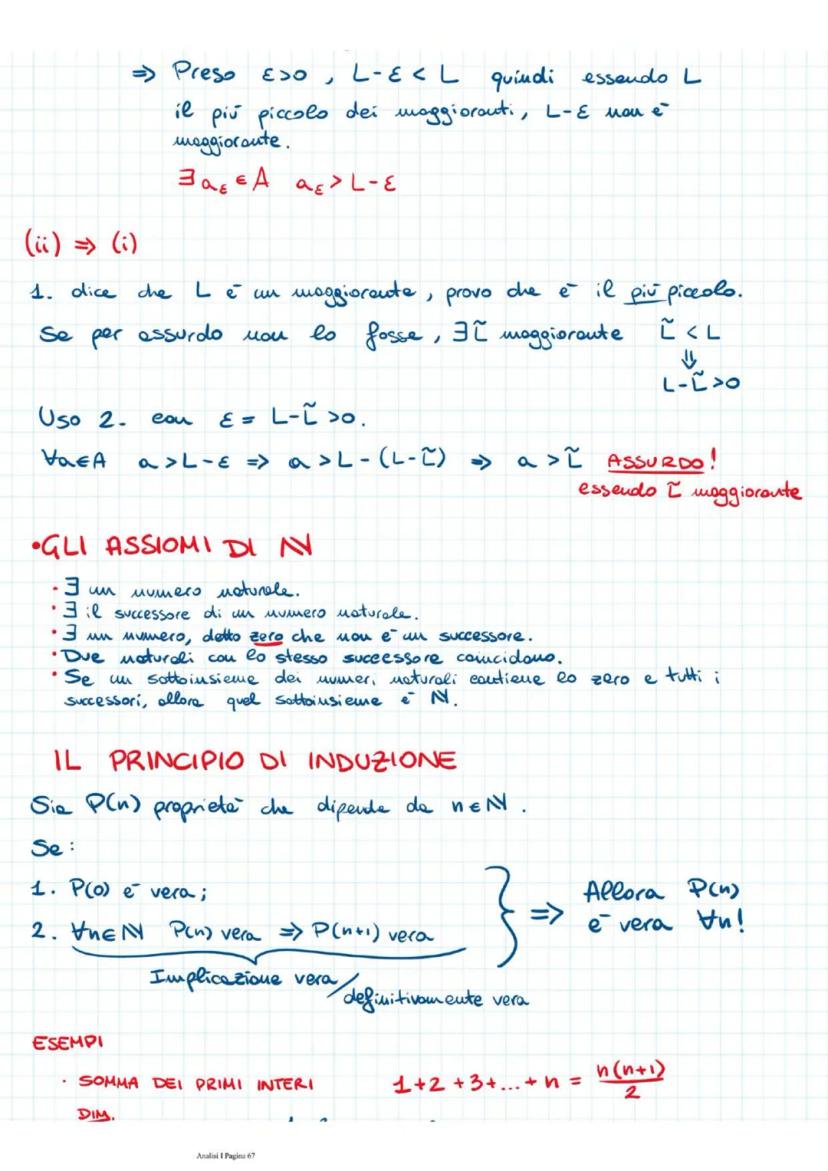 ⇒ Preso ε>0 , L-ε < L quindi essendo L
il più piccolo dei maggioranti, L-ε non è
maggiorante.
∃ a_ε ∈ A a_ε > L-ε
(ii) ⇒ (i)
1. dice che L è un maggiorante, provo che è il più piccolo.
Se per assurdo non lo fosse, ∃ L̃ maggiorante L̃ < L
⇓
L-L̃ >0
Uso 2. con ε = L-L̃ >0.
∀a∈A a >L-ε ⇒ a >L-(L-L̃) ⇒ a > L̃ ASSURDO!
essendo L̃ maggiorante
•GLI ASSIOMI DI ℕ
• ∃ un numero naturale.
• ∃ il successore di un numero naturale.
• ∃ un numero, detto zero che non è un successore.
• Due naturali con lo stesso successore coincidono.
• Se un sottoinsieme dei numeri naturali contiene lo zero e tutti i
successori, allora quel sottoinsieme è ℕ.
IL PRINCIPIO DI INDUZIONE
Sia P(n) proprietà che dipende da n∈ℕ .
Se:
1. P(0) è vera;
2. ∀n∈ℕ P(n) vera ⇒ P(n+1) vera
} ⇒ Allora P(n)
è vera ∀n!
Implicazione vera/
definitivamente vera
ESEMPI
• SOMMA DEI PRIMI INTERI 1+2+3+...+n = n(n+1)/2
DIM.
Analisi I Pagina 67